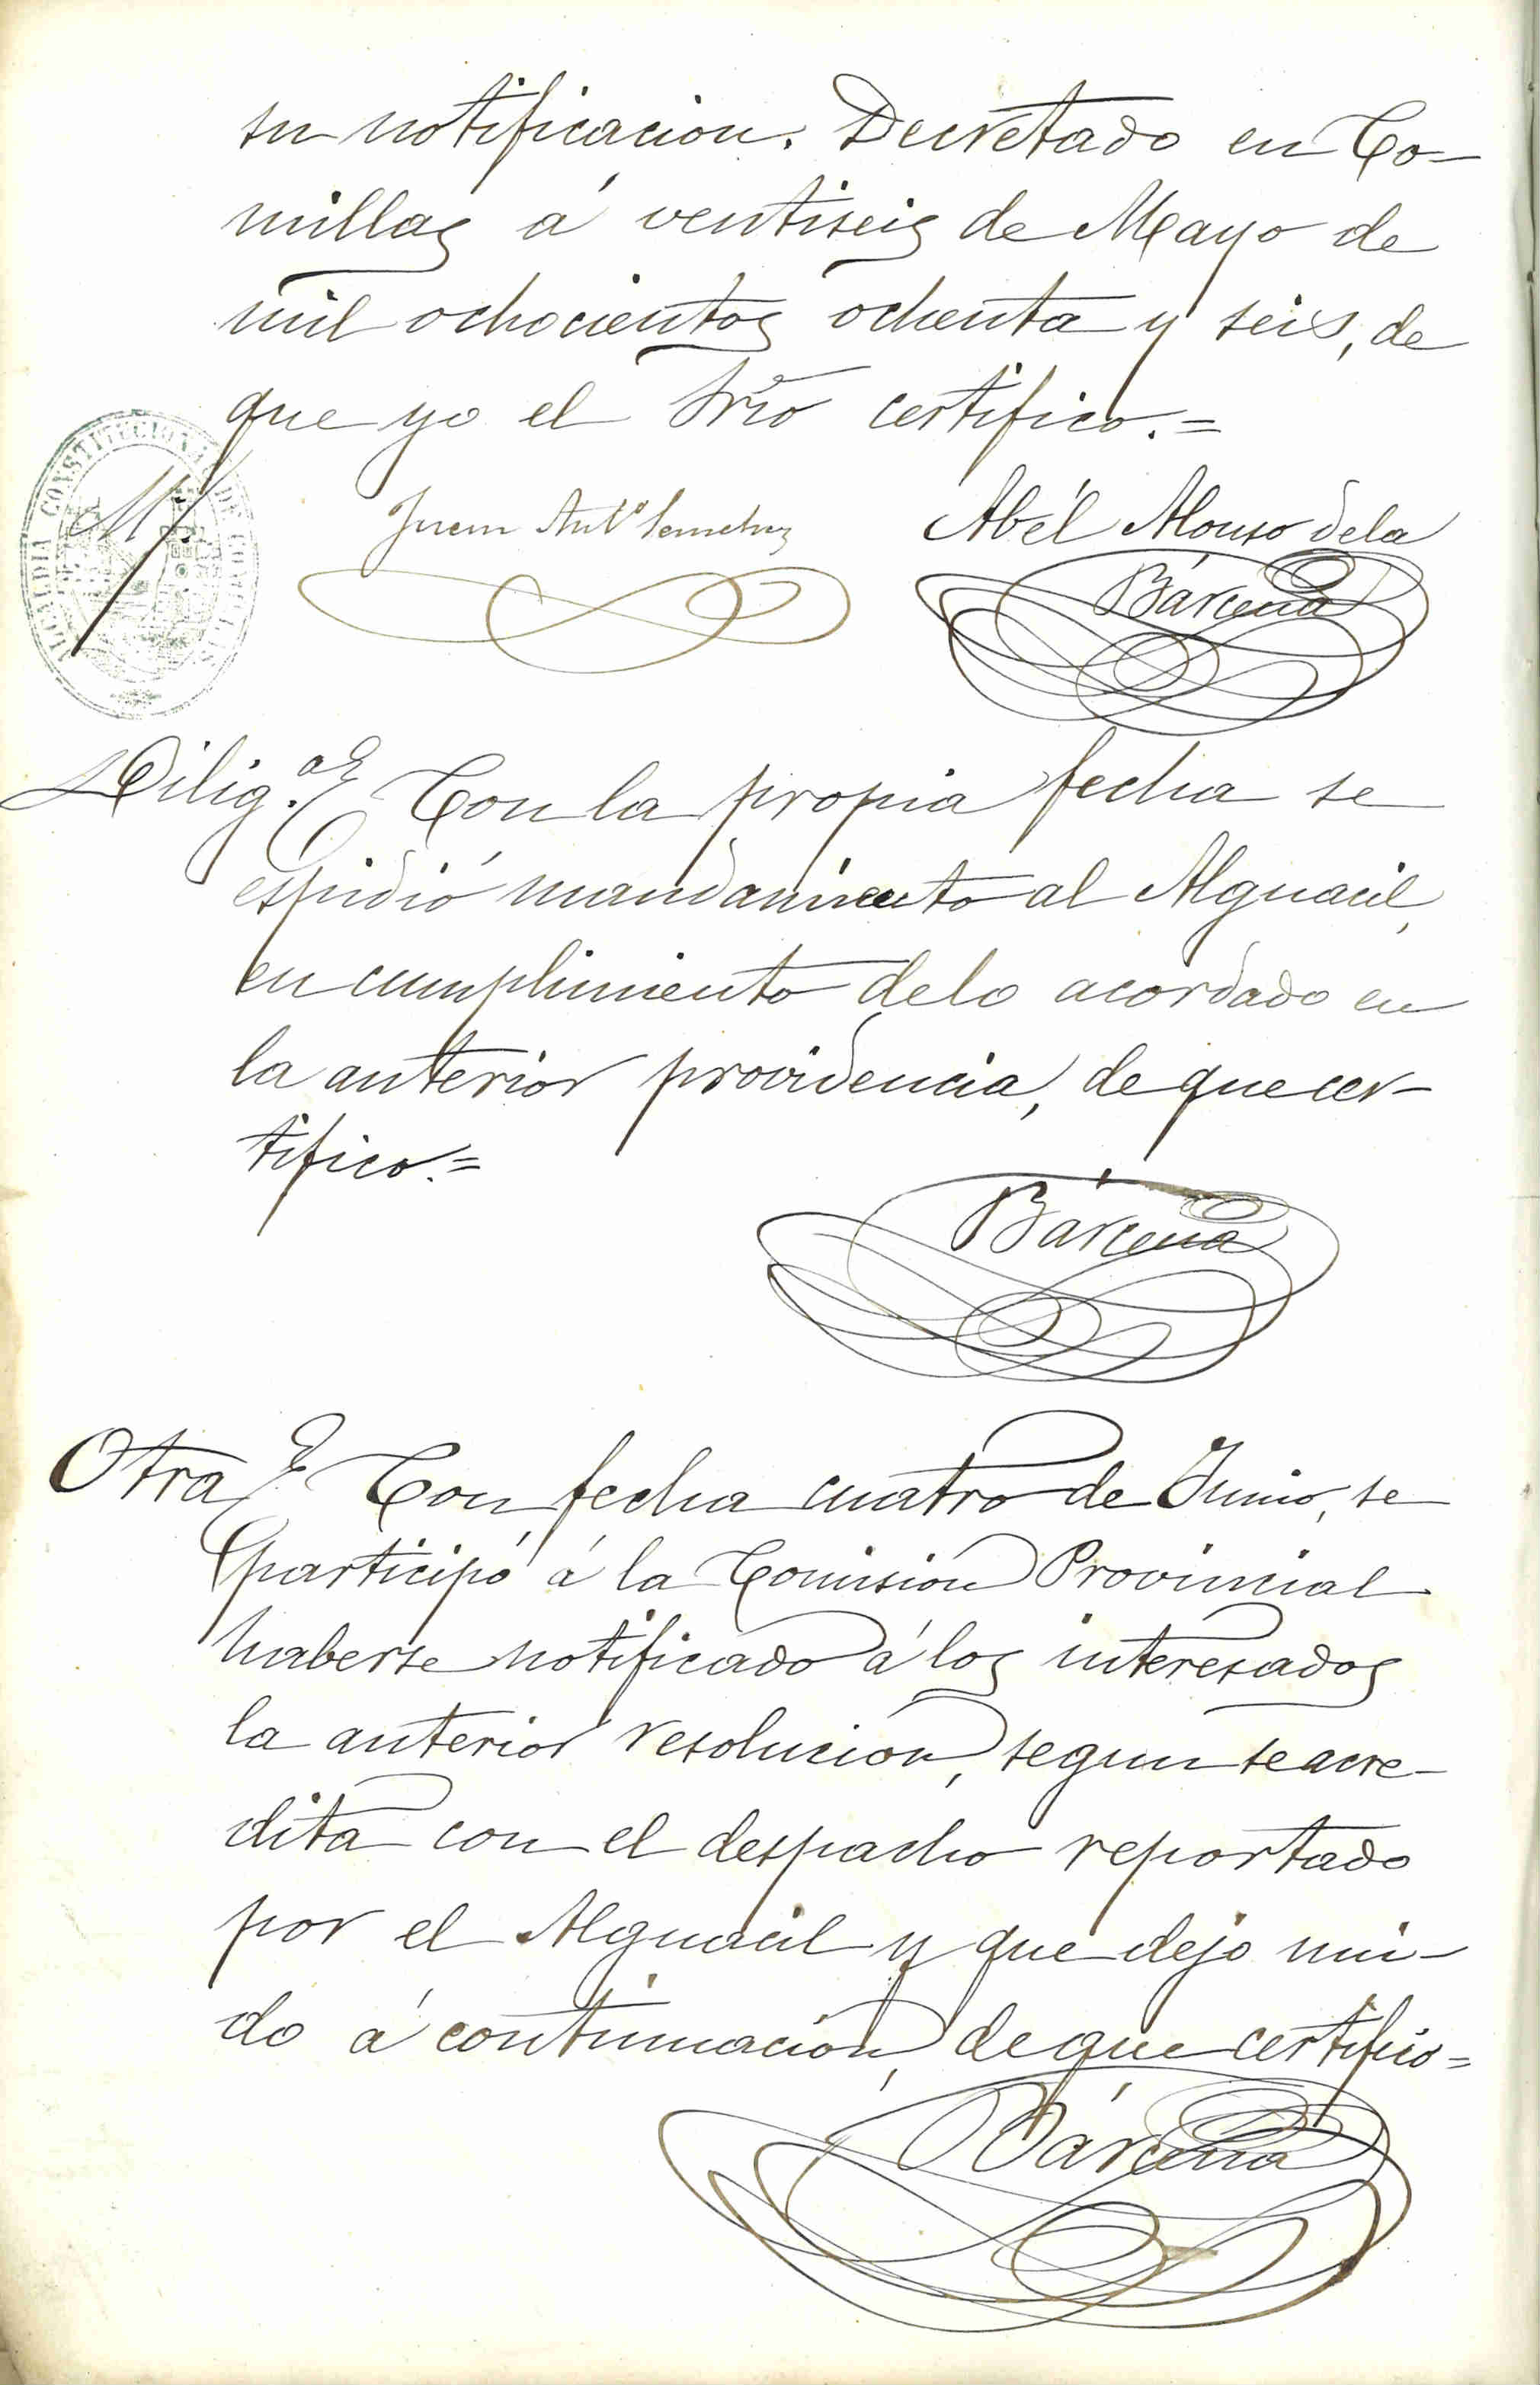 su notificacion. Decretado en Co-
millas á ventiseis de Mayo de
mil ochocientos ochenta y seis, de
que yo el Srio certifico.=
ALCALDIA CONSTITUCIONAL DE COMILLAS
Juan Antº
Abél Alonso dela
Bárcena
Dilig.ª Con la propia fecha se
espidió mandamiento al Alguacil,
en cumplimiento delo acordado en
la anterior providencia, de que cer-
tifico.=
Bárcena
Otra Con fecha cuatro de Junio, se
participó á la Comisión Provincial
haberse notificado á los interesados
la anterior resolución, segun se acre-
dita con el despacho reportado
por el Alguacil y que dejo uni-
do á continuación, de que certifico=
Bárcena